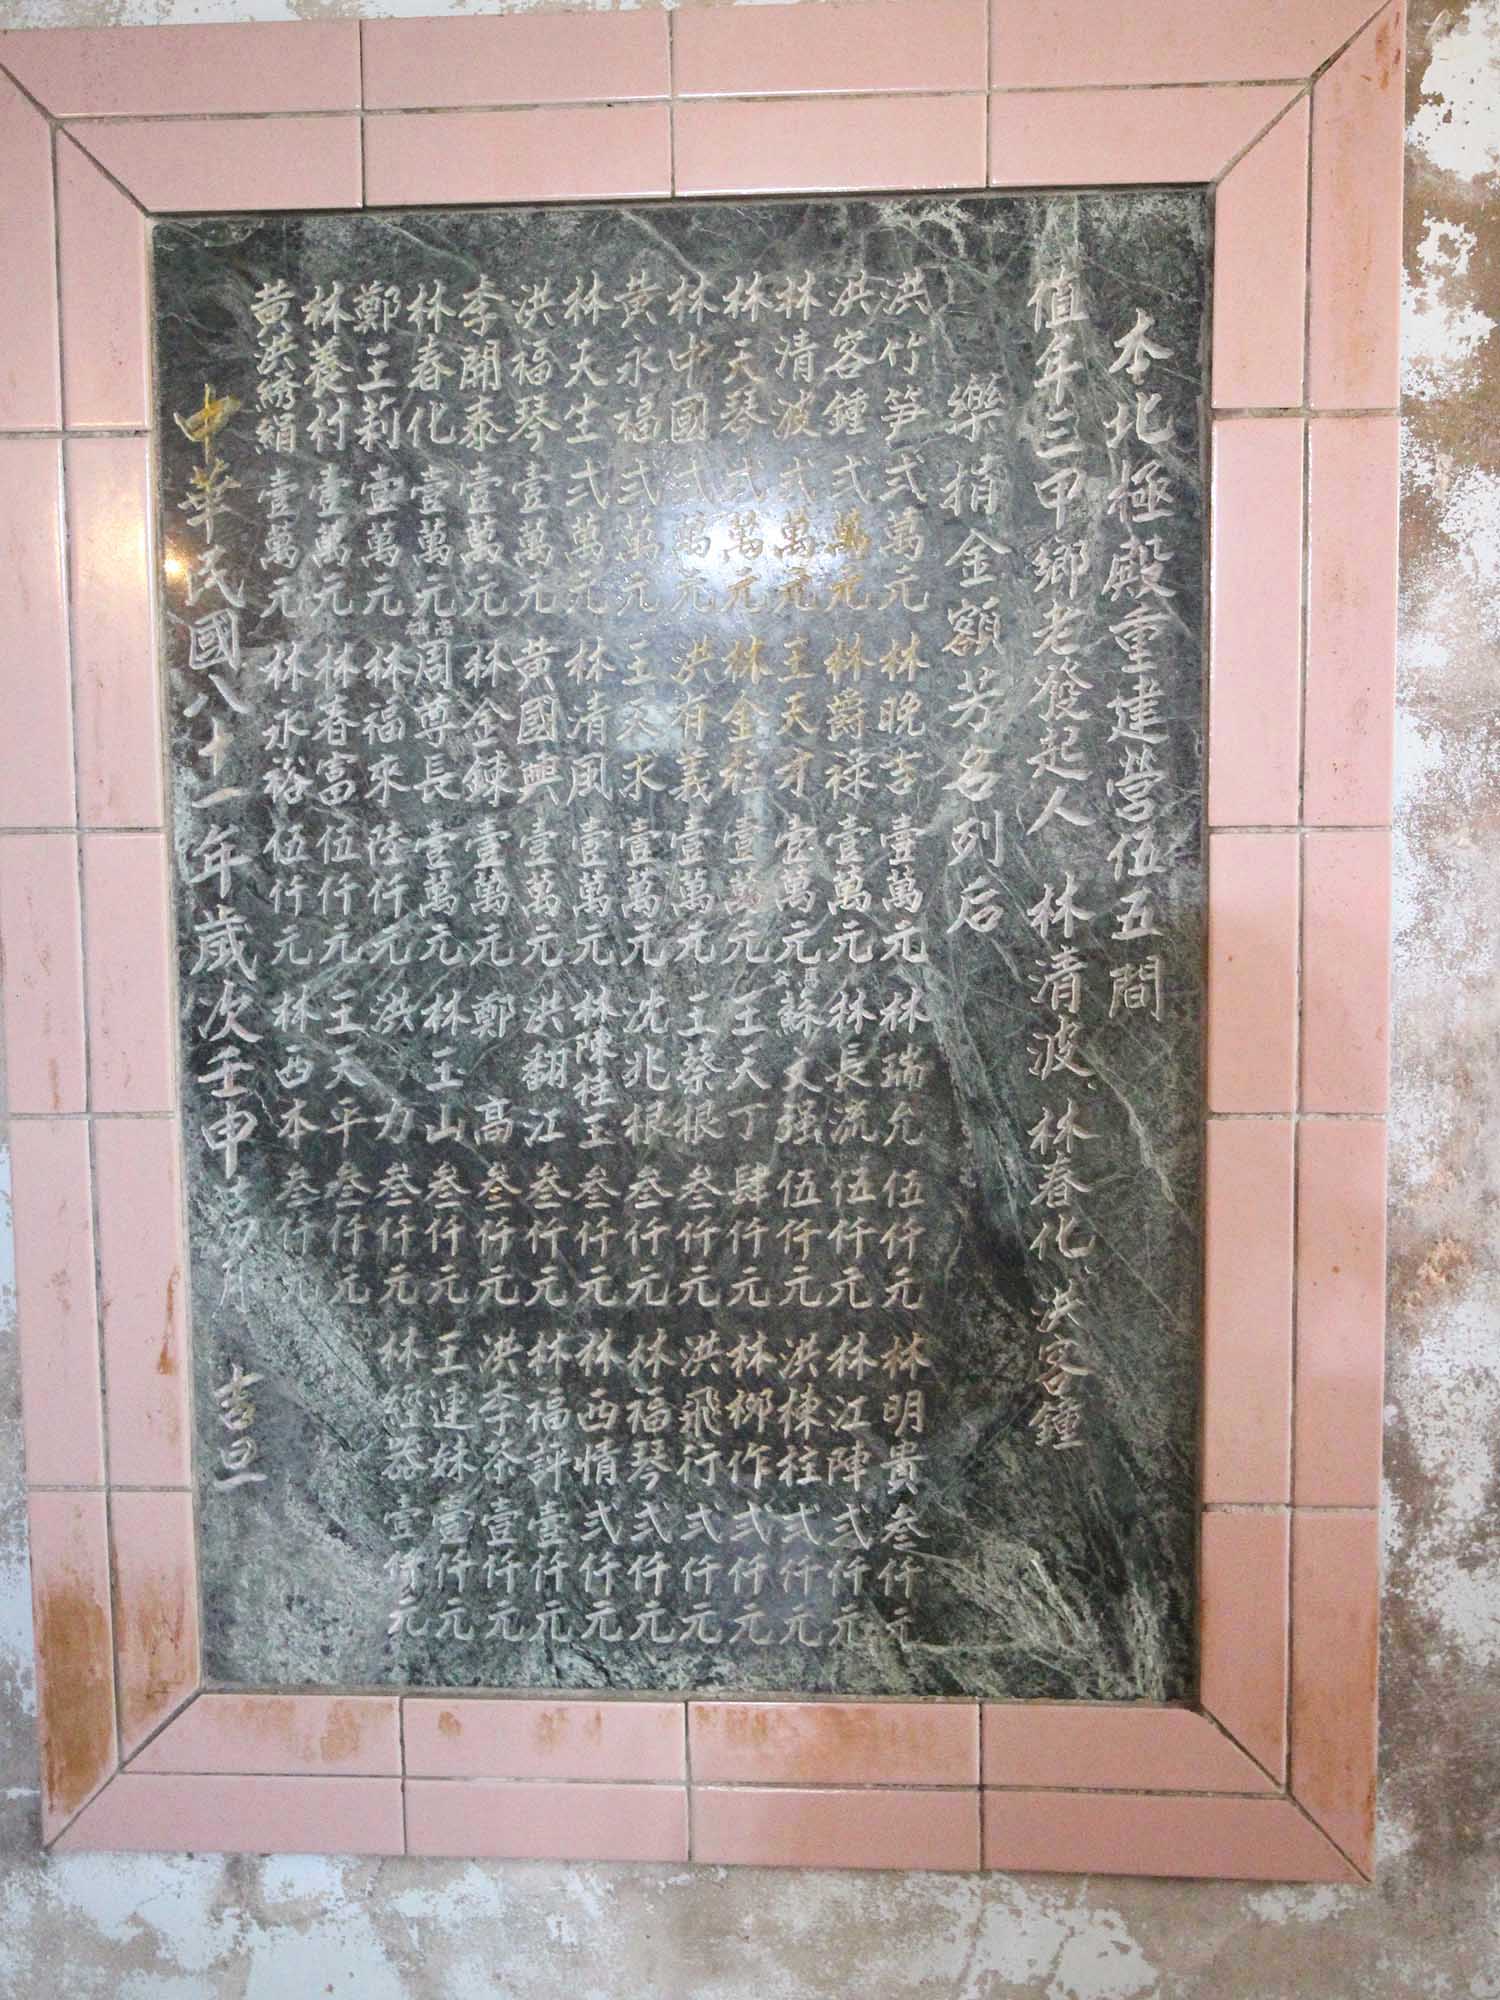 本北極殿重建營伍五間
值年三甲鄉老發起人 林清波、林春化、洪客鐘
樂捐金額芳名列后
洪竹笋弍萬元 林晚吉壹萬元 林瑞允伍仟元 林明貴叁仟元
洪客鐘弍萬元 林爵祿壹萬元 林長流伍仟元 林江陣弍仟元
林清波弍萬元 王天才壹萬元 蘇文强伍仟元 洪棟柱弍仟元
林天琴弍萬元 林金柱壹萬元 王天丁肆仟元 林柳作弍仟元
林中國弍萬元 洪有義壹萬元 王蔡根叁仟元 洪飛行弍仟元
黃永福弍萬元 王天求壹萬元 沈兆根叁仟元 林福琴弍仟元
林天生弍萬元 林清風壹萬元 林陳桂玉叁仟元 林西情弍仟元
洪福琴壹萬元 黃國興壹萬元 洪翻江叁仟元 林福評壹仟元
李開泰壹萬元 林金鍊壹萬元 鄭高叁仟元 洪李茶壹仟元
林春化壹萬元 周尊長壹萬元 林王山叁仟元 王連妹壹仟元
鄭王莉壹萬元 林福來陸仟元 洪力叁仟元 林經器壹仟元
林養竹壹萬元 林春富伍仟元 王天平叁仟元
黃洪綉絹壹萬元 林永裕伍仟元 林西本叁仟元
中華民國八十一年歲次壬申 月 吉旦